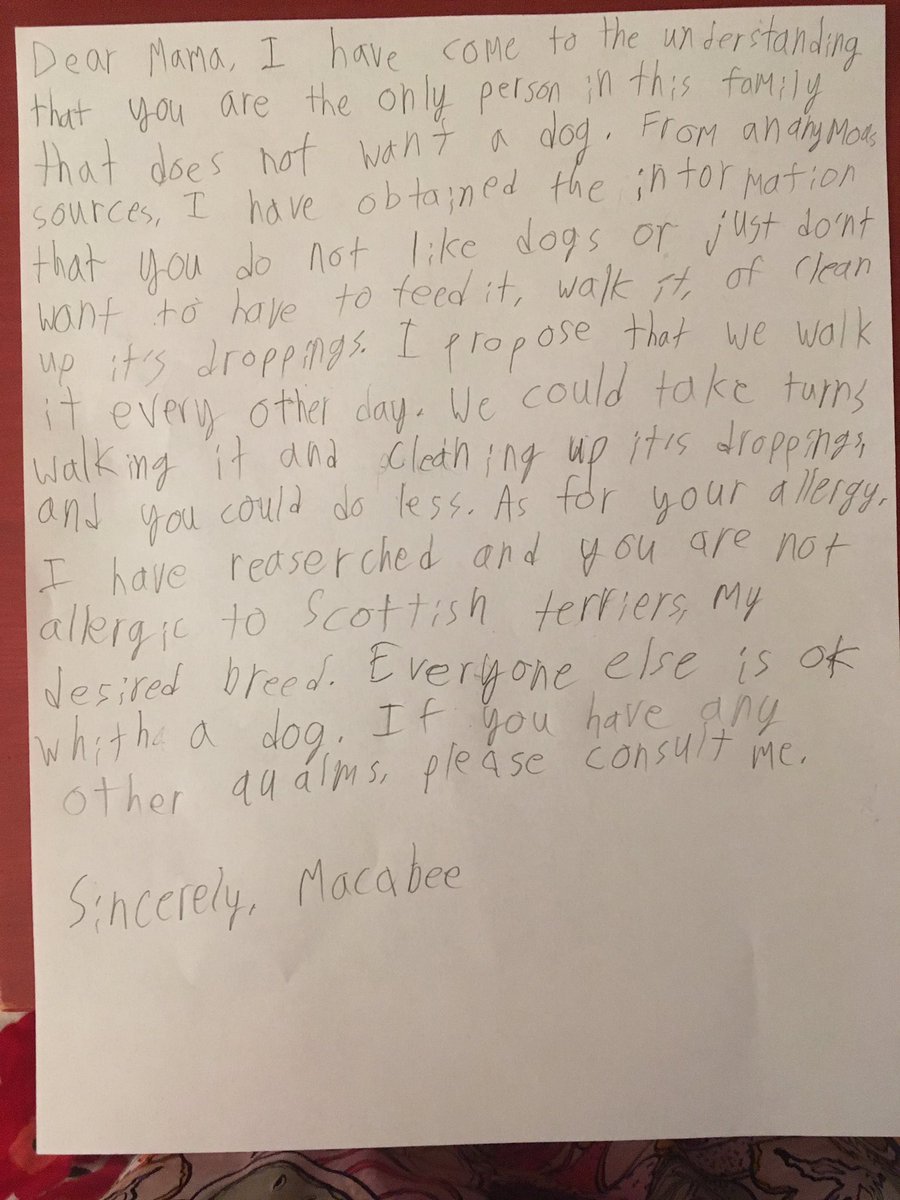 Dear Mama, I have come to the understanding
that you are the only person in this family
that does not want a dog. From ananymous
sources, I have obtained the information
that you do not like dogs or just do'nt
want to have to feed it, walk it, of clean
up it's droppings. I propose that we walk
it every other day. We could take turns
walking it and cleaning up it's droppings,
and you could do less. As for your allergy,
I have reaserched and you are not
allergic to Scottish terriers, my
desired breed. Everyone else is ok
whith a dog. If you have any
other qualms, please consult me.
Sincerely, Macabee